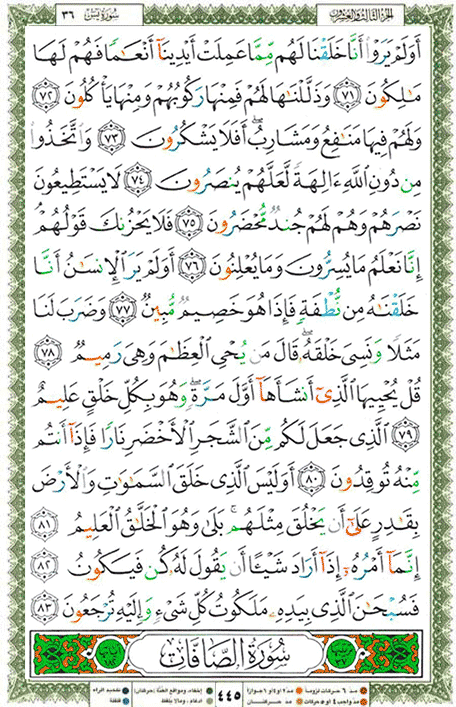 سُورَةُ يسٓ ٣٦ الجزء الثالث والعشرون
أَوَلَمْ يَرَوْا۟ أَنَّا خَلَقْنَا لَهُم مِّمَّا عَمِلَتْ أَيْدِينَآ أَنْعَـٰمًا فَهُمْ لَهَا
مَـٰلِكُونَ ٧١ وَذَلَّلْنَـٰهَا لَهُمْ فَمِنْهَا رَكُوبُهُمْ وَمِنْهَا يَأْكُلُونَ ٧٢
وَلَهُمْ فِيهَا مَنَـٰفِعُ وَمَشَارِبُ ۖ أَفَلَا يَشْكُرُونَ ٧٣ وَٱتَّخَذُوا۟
مِن دُونِ ٱللَّهِ ءَالِهَةً لَّعَلَّهُمْ يُنصَرُونَ ٧٤ لَا يَسْتَطِيعُونَ
نَصْرَهُمْ وَهُمْ لَهُمْ جُندٌ مُّحْضَرُونَ ٧٥ فَلَا يَحْزُنكَ قَوْلُهُمْ ۘ
إِنَّا نَعْلَمُ مَا يُسِرُّونَ وَمَا يُعْلِنُونَ ٧٦ أَوَلَمْ يَرَ ٱلْإِنسَـٰنُ أَنَّا
خَلَقْنَـٰهُ مِن نُّطْفَةٍ فَإِذَا هُوَ خَصِيمٌ مُّبِينٌ ٧٧ وَضَرَبَ لَنَا
مَثَلًا وَنَسِىَ خَلْقَهُۥ ۖ قَالَ مَن يُحْىِ ٱلْعِظَـٰمَ وَهِىَ رَمِيمٌ ٧٨
قُلْ يُحْيِيهَا ٱلَّذِىٓ أَنشَأَهَآ أَوَّلَ مَرَّةٍ ۖ وَهُوَ بِكُلِّ خَلْقٍ عَلِيمٌ
٧٩ ٱلَّذِى جَعَلَ لَكُم مِّنَ ٱلشَّجَرِ ٱلْأَخْضَرِ نَارًا فَإِذَآ أَنتُم
مِّنْهُ تُوقِدُونَ ٨٠ أَوَلَيْسَ ٱلَّذِى خَلَقَ ٱلسَّمَـٰوَٰتِ وَٱلْأَرْضَ
بِقَـٰدِرٍ عَلَىٰٓ أَن يَخْلُقَ مِثْلَهُم ۚ بَلَىٰ وَهُوَ ٱلْخَلَّـٰقُ ٱلْعَلِيمُ ٨١
إِنَّمَآ أَمْرُهُۥٓ إِذَآ أَرَادَ شَيْـًٔا أَن يَقُولَ لَهُۥ كُن فَيَكُونُ ٨٢
فَسُبْحَـٰنَ ٱلَّذِى بِيَدِهِۦ مَلَكُوتُ كُلِّ شَىْءٍ وَإِلَيْهِ تُرْجَعُونَ ٨٣
سُورَةُ الصَّافَّاتِ
٤٤٥